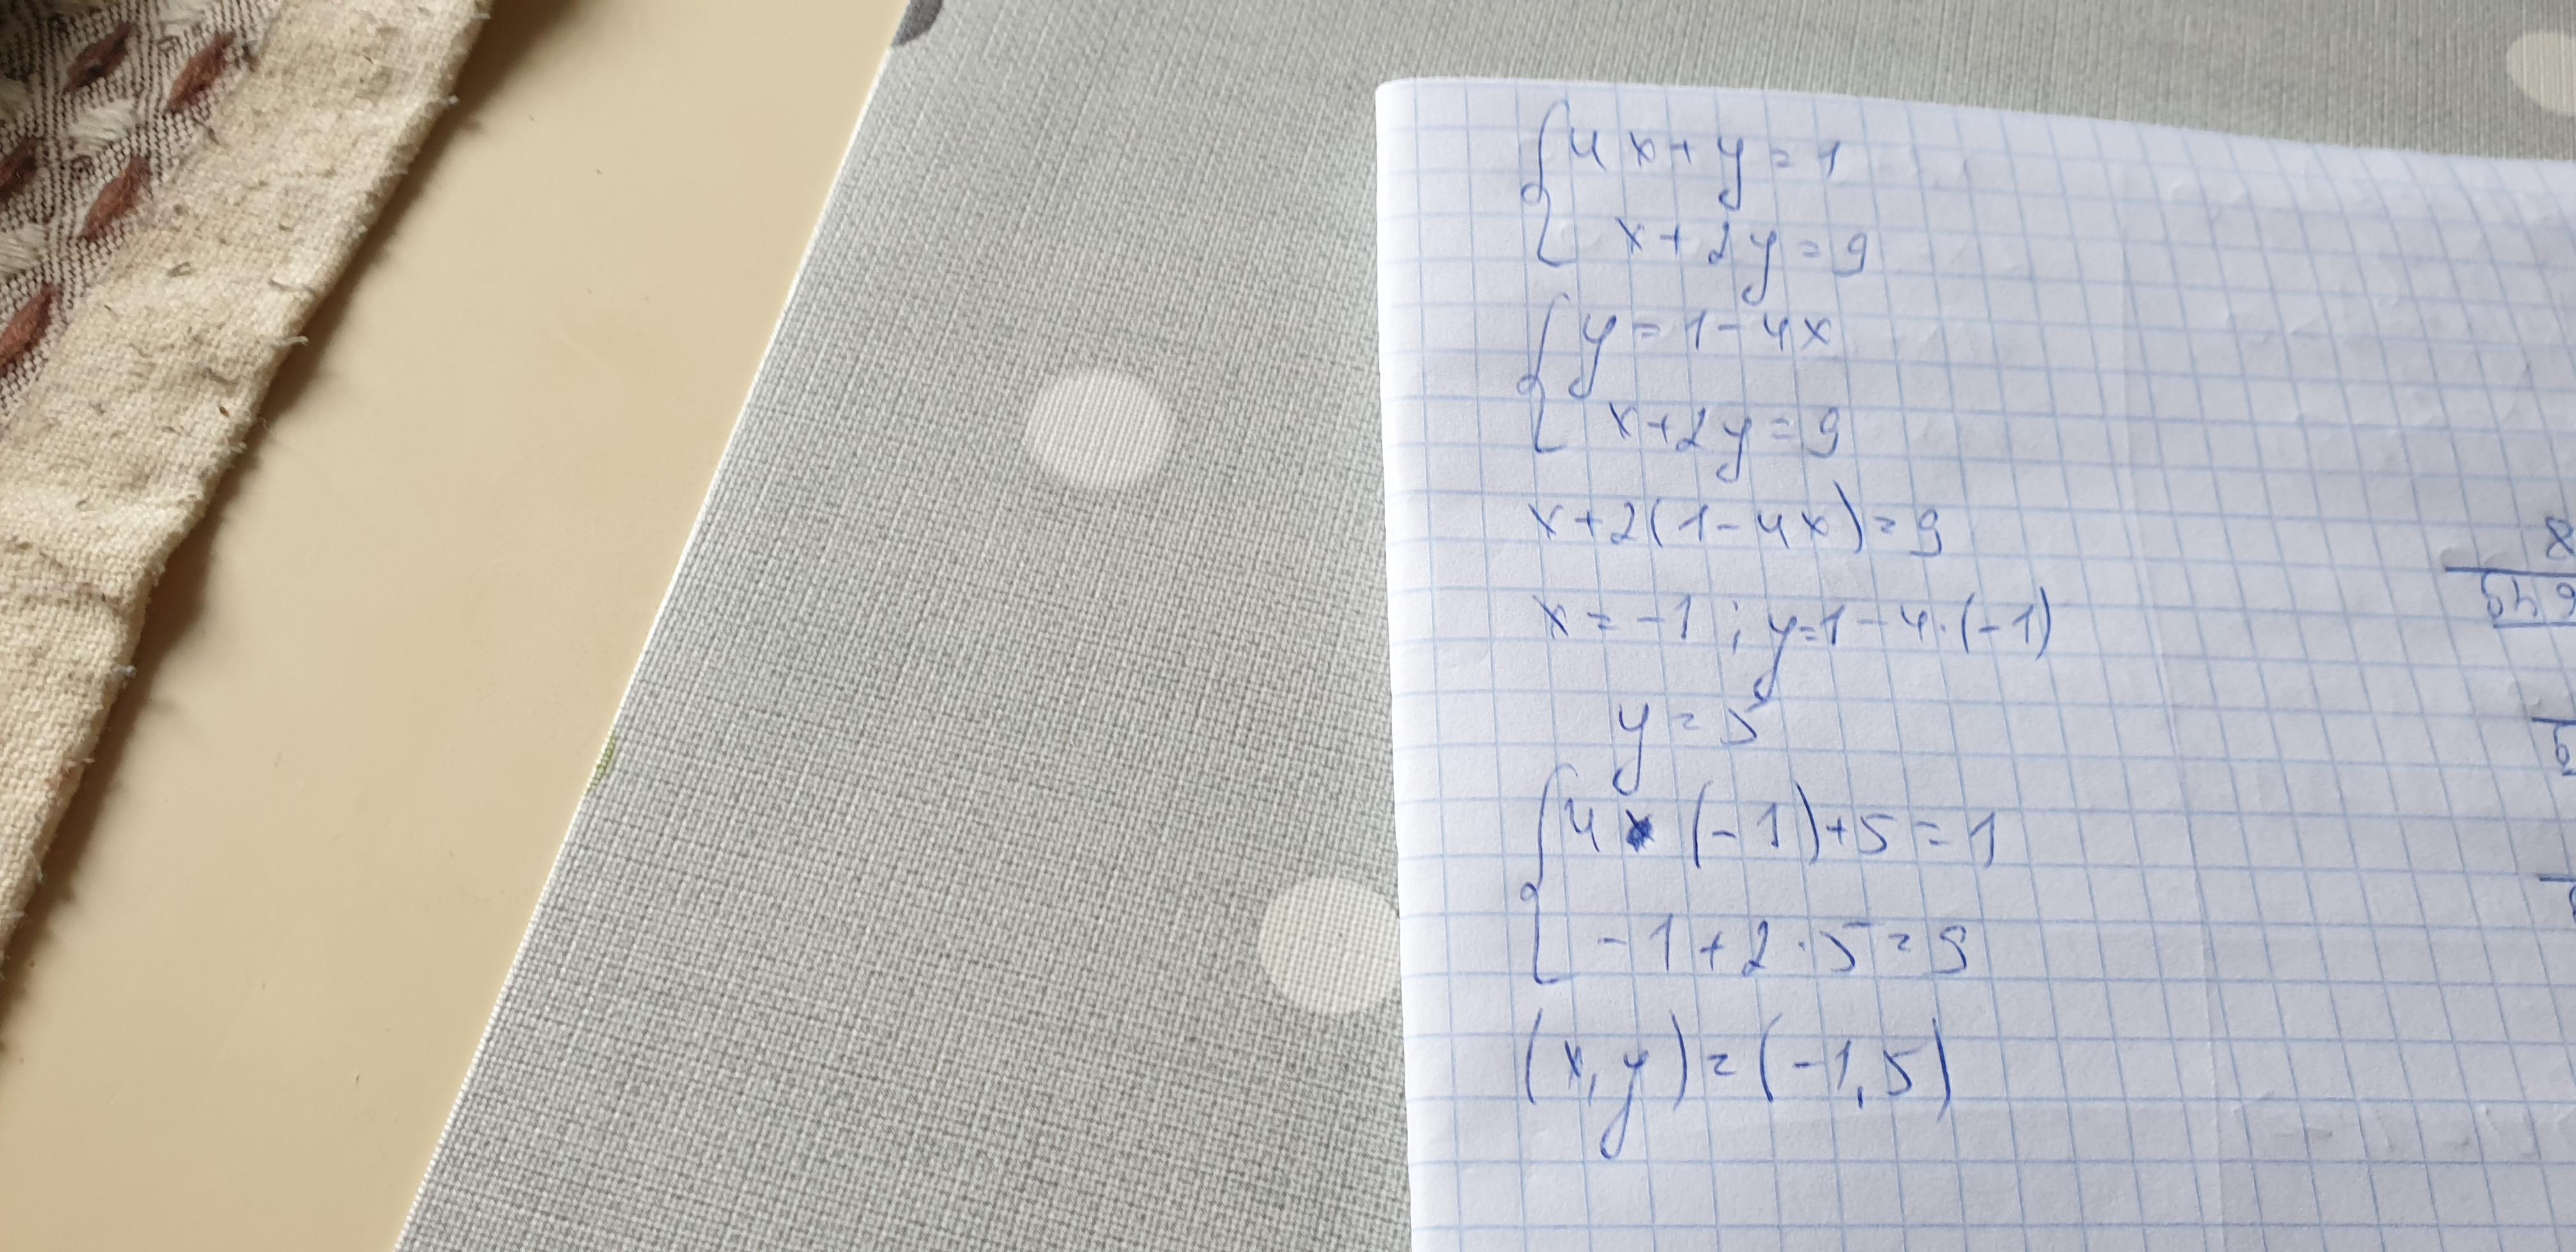 4x+y=1
x+2y=9
y=1-4x
x+2y=9
x+2(1-4x)=9
x=-1; y=1-4·(-1)
y=5
4·(-1)+5=1
-1+2·5=9
(x,y)=(-1,5)